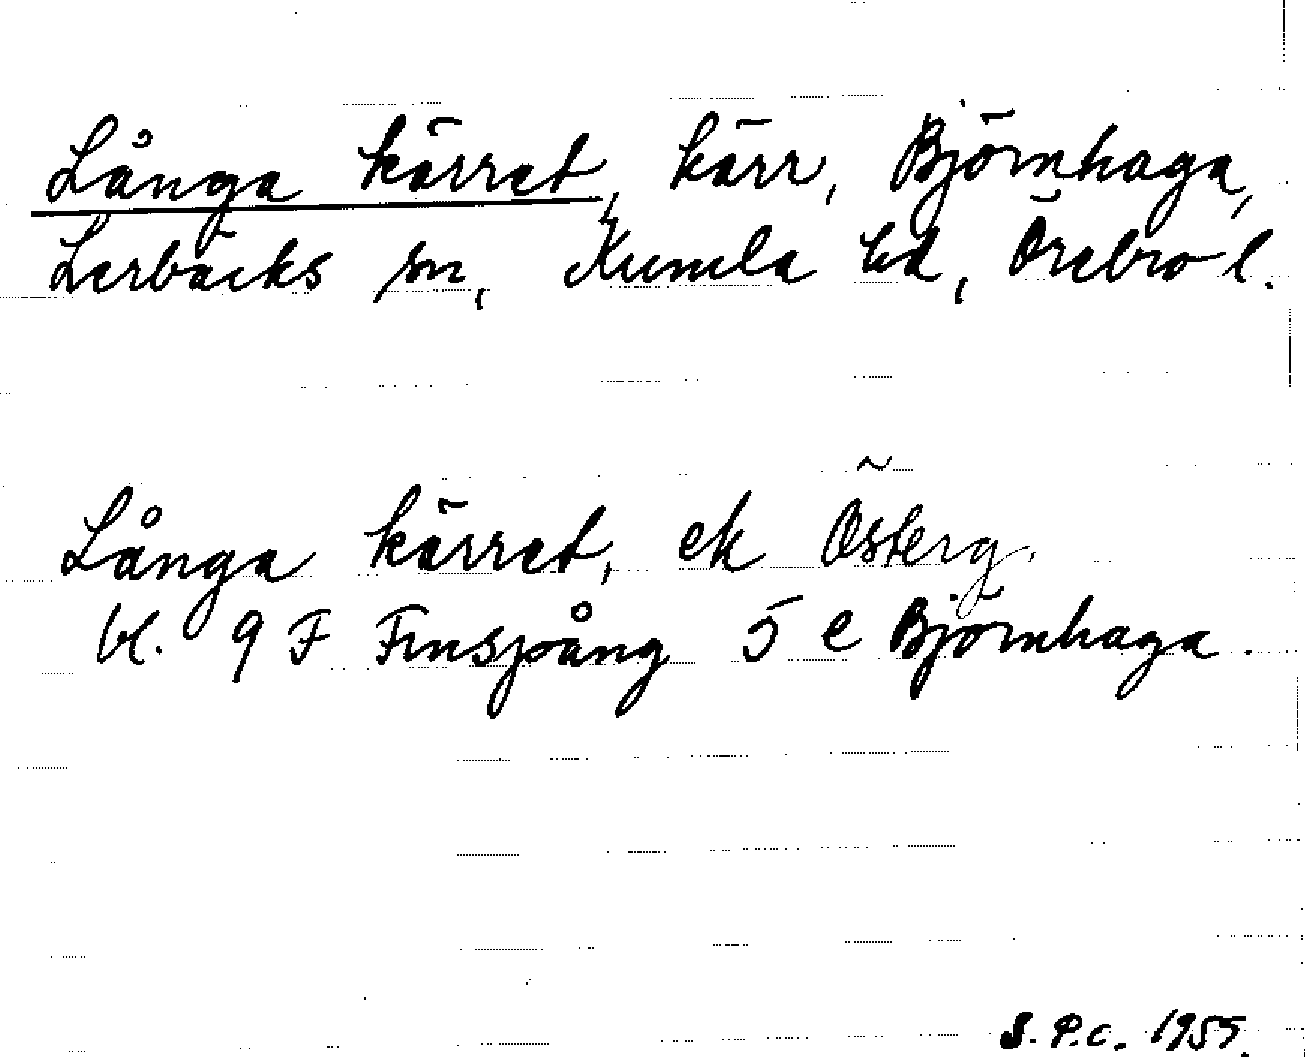 Långa kärret, kärr, Björnhaga,
Lerbäcks sn, Kumla hd, Örebro l.
Långa kärret, ek Österg.
bl. 9 F Finspång 5 e Björnhaga.
S.P.C. 1955.